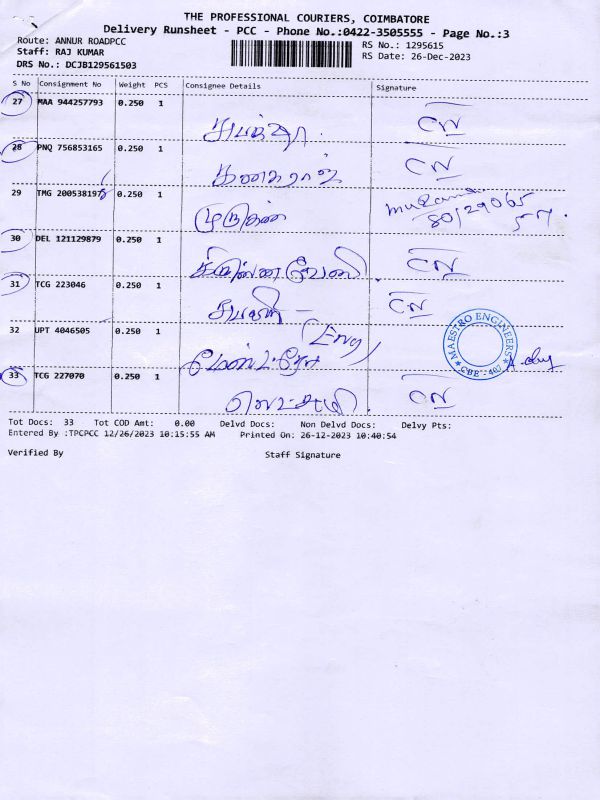 THE PROFESSIONAL COURIERS, COIMBATORE
Delivery Runsheet - PCC - Phone No.:0422-3505555 - Page No.:3
Route: ANNUR ROADPCC
RS No.: 1295615
Staff: RAJ KUMAR
RS Date: 26-Dec-2023
DRS No.: DCJB129561503
S No Consignment No Weight PCS Consignee Details Signature
27 MAA 944257793 0.250 1 CN
28 PNQ 756853165 0.250 1 கனகராஜ் CN
29 TMG 200538197 0.250 1 முருகன்
30 DEL 121129879 0.250 1 CN
31 TCG 223046 0.250 1 CN
32 UPT 4046505 0.250 1 (Eng)
MAESTRO ENGINEERS
CBE - 407
33 TCG 227070 0.250 1 CN
Tot Docs: 33 Tot COD Amt: 0.00 Delvd Docs: Non Delvd Docs: Delvy Pts:
Entered By :TPCPCC 12/26/2023 10:15:55 AM Printed On: 26-12-2023 10:40:54
Verified By Staff Signature